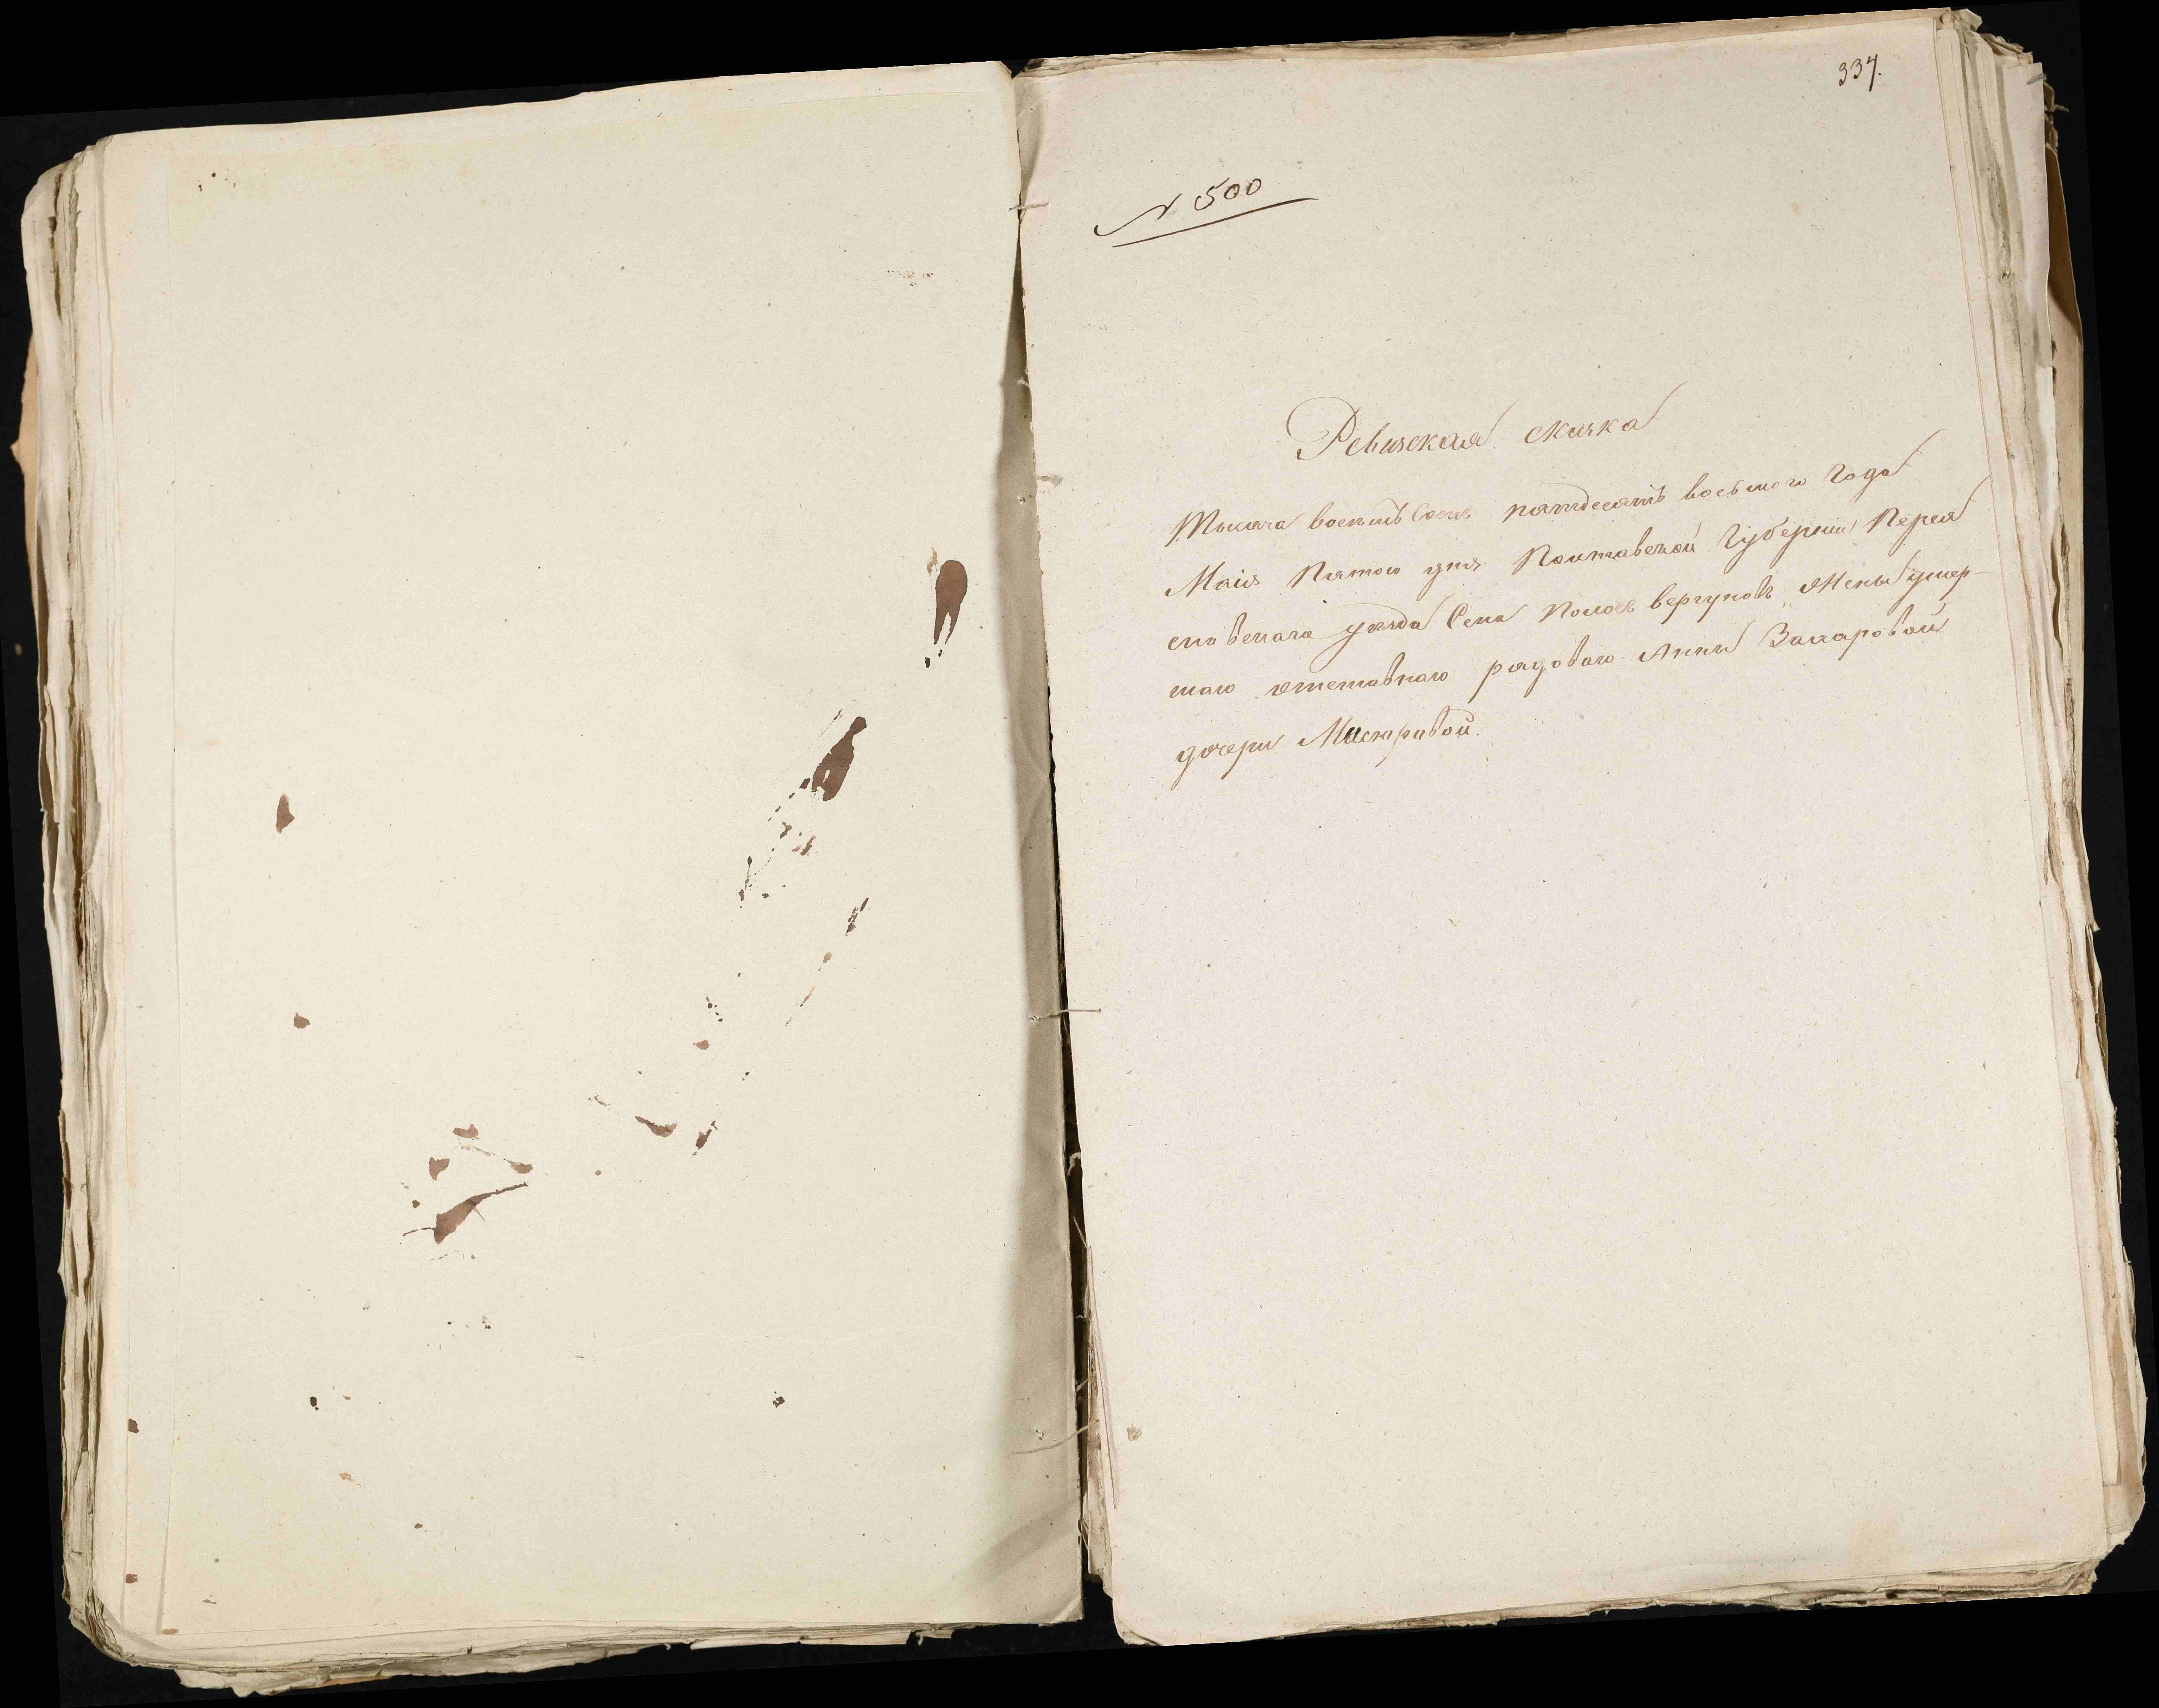 337.
N 500
Ревизская сказка
Тысяча восемь сотъ пятдесятъ восьмого года
Маія Пятого дня Полтавской Губерніи Перея
славскаго уезда Села Вергуновъ Жены умер-
шаго отставнаго рядоваго Анны Захаровой
дочери